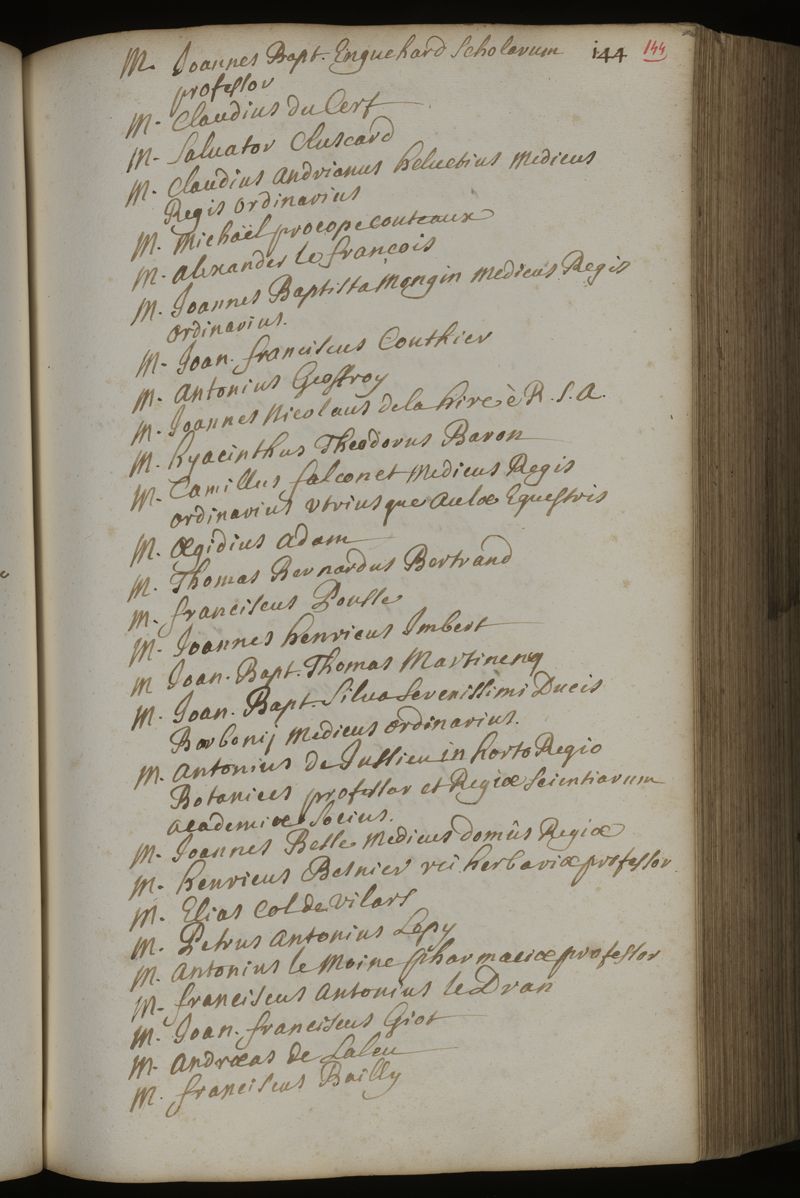 M. Joannes Bapt. Enguehard Scholarum 144 144
professor
M. Claudius du Cerf
M. Saluator Cluscard
M. Claudius Andrianus helvetius Medicus
Regis ordinarius
M. Michaël procope couteaux
M. Alexander le françois
M. Joannes Baptista Mongin Medicus Regis
ordinarius.
M. Joan. franciscus Couthier
M. Antonius Geoffroy
M. Joannes Nicolaus de la hire è R. S. A.
M. hyacinthus Theodorus Baron
M. Camillus falconet Medicus Regis
ordinarius utriusque Aulæ Equestris
M. Ægidius Adam
M. Thomas Bernardus Bertrand
M. franciscus Pousse
M. Joannes henricus Imbert
M Joan. Bapt. Thomas Martinenq
M. Joan. Bapt. Silva Serenissimi Ducis
Borbonij Medicus ordinarius.
M. Antonius de Jussieu in horto Regio
Botanices professor et Regiæ Scientiarum
academiæ Socius.
M. Joannes Besse Medicus domûs Regiæ
M. henricus Besnier rei herbariæ professor
M. Elias Col de Vilars
M. Petrus Antonius Lepy
M. Antonius le Moine pharmaciæ professor
M. franciscus Antonius le Dran
M. Joan. franciscus Giot
M. Andræas de Laleu
M. franciscus Bailly